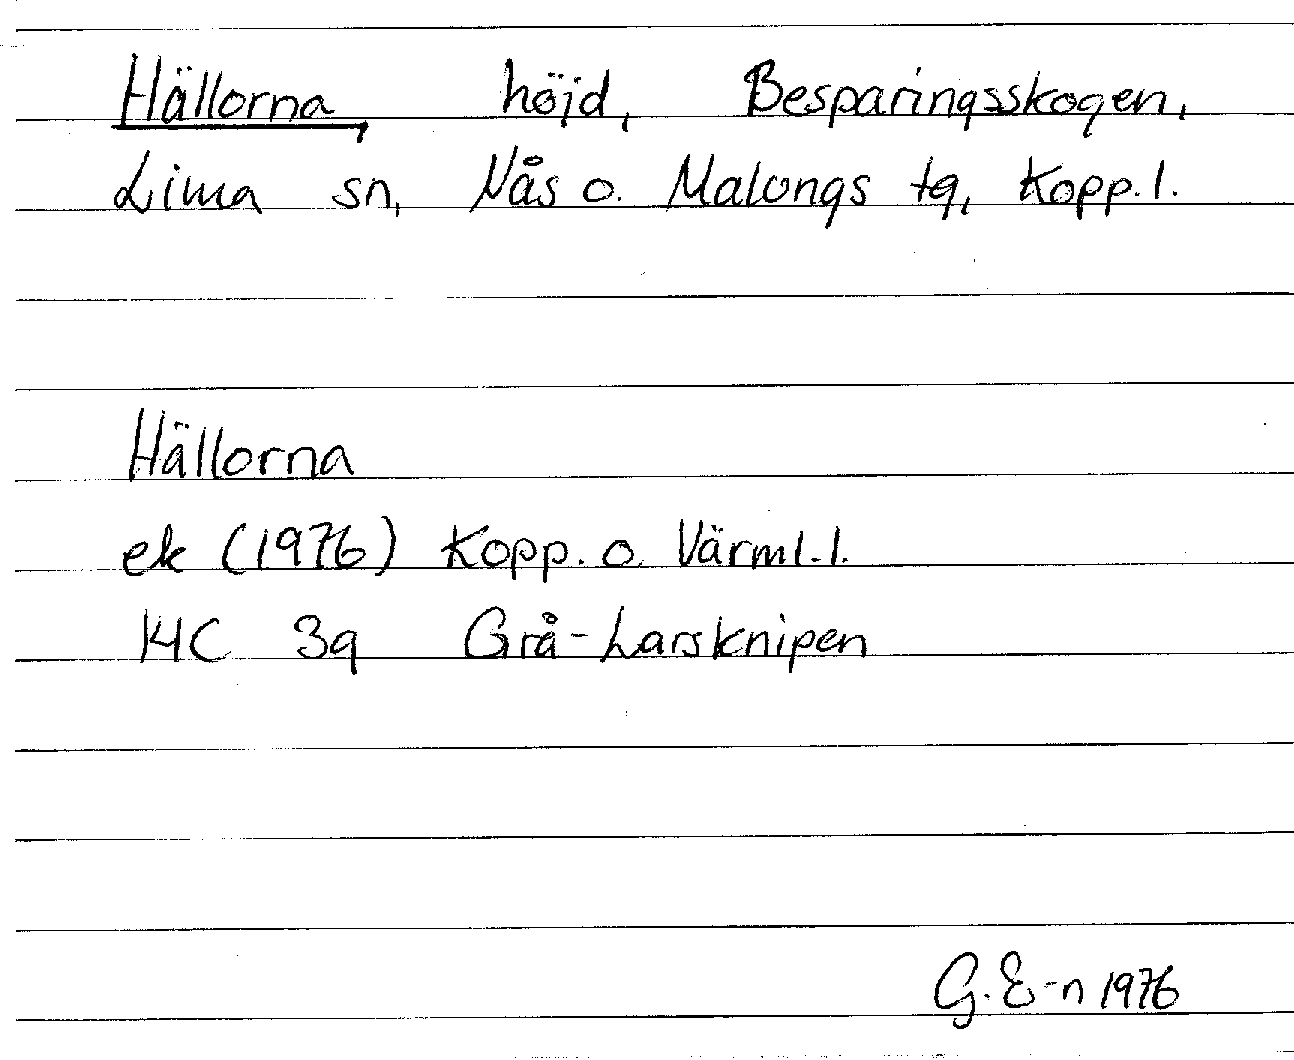 Hällorna, höjd, Besparingsskogen,
Lima sn, Nås o. Malungs tg, Kopp. l.
Hällorna
ek (1976) Kopp. o. Värml. l.
14C 3g Grå-Larsknipen
G. E-n 1976